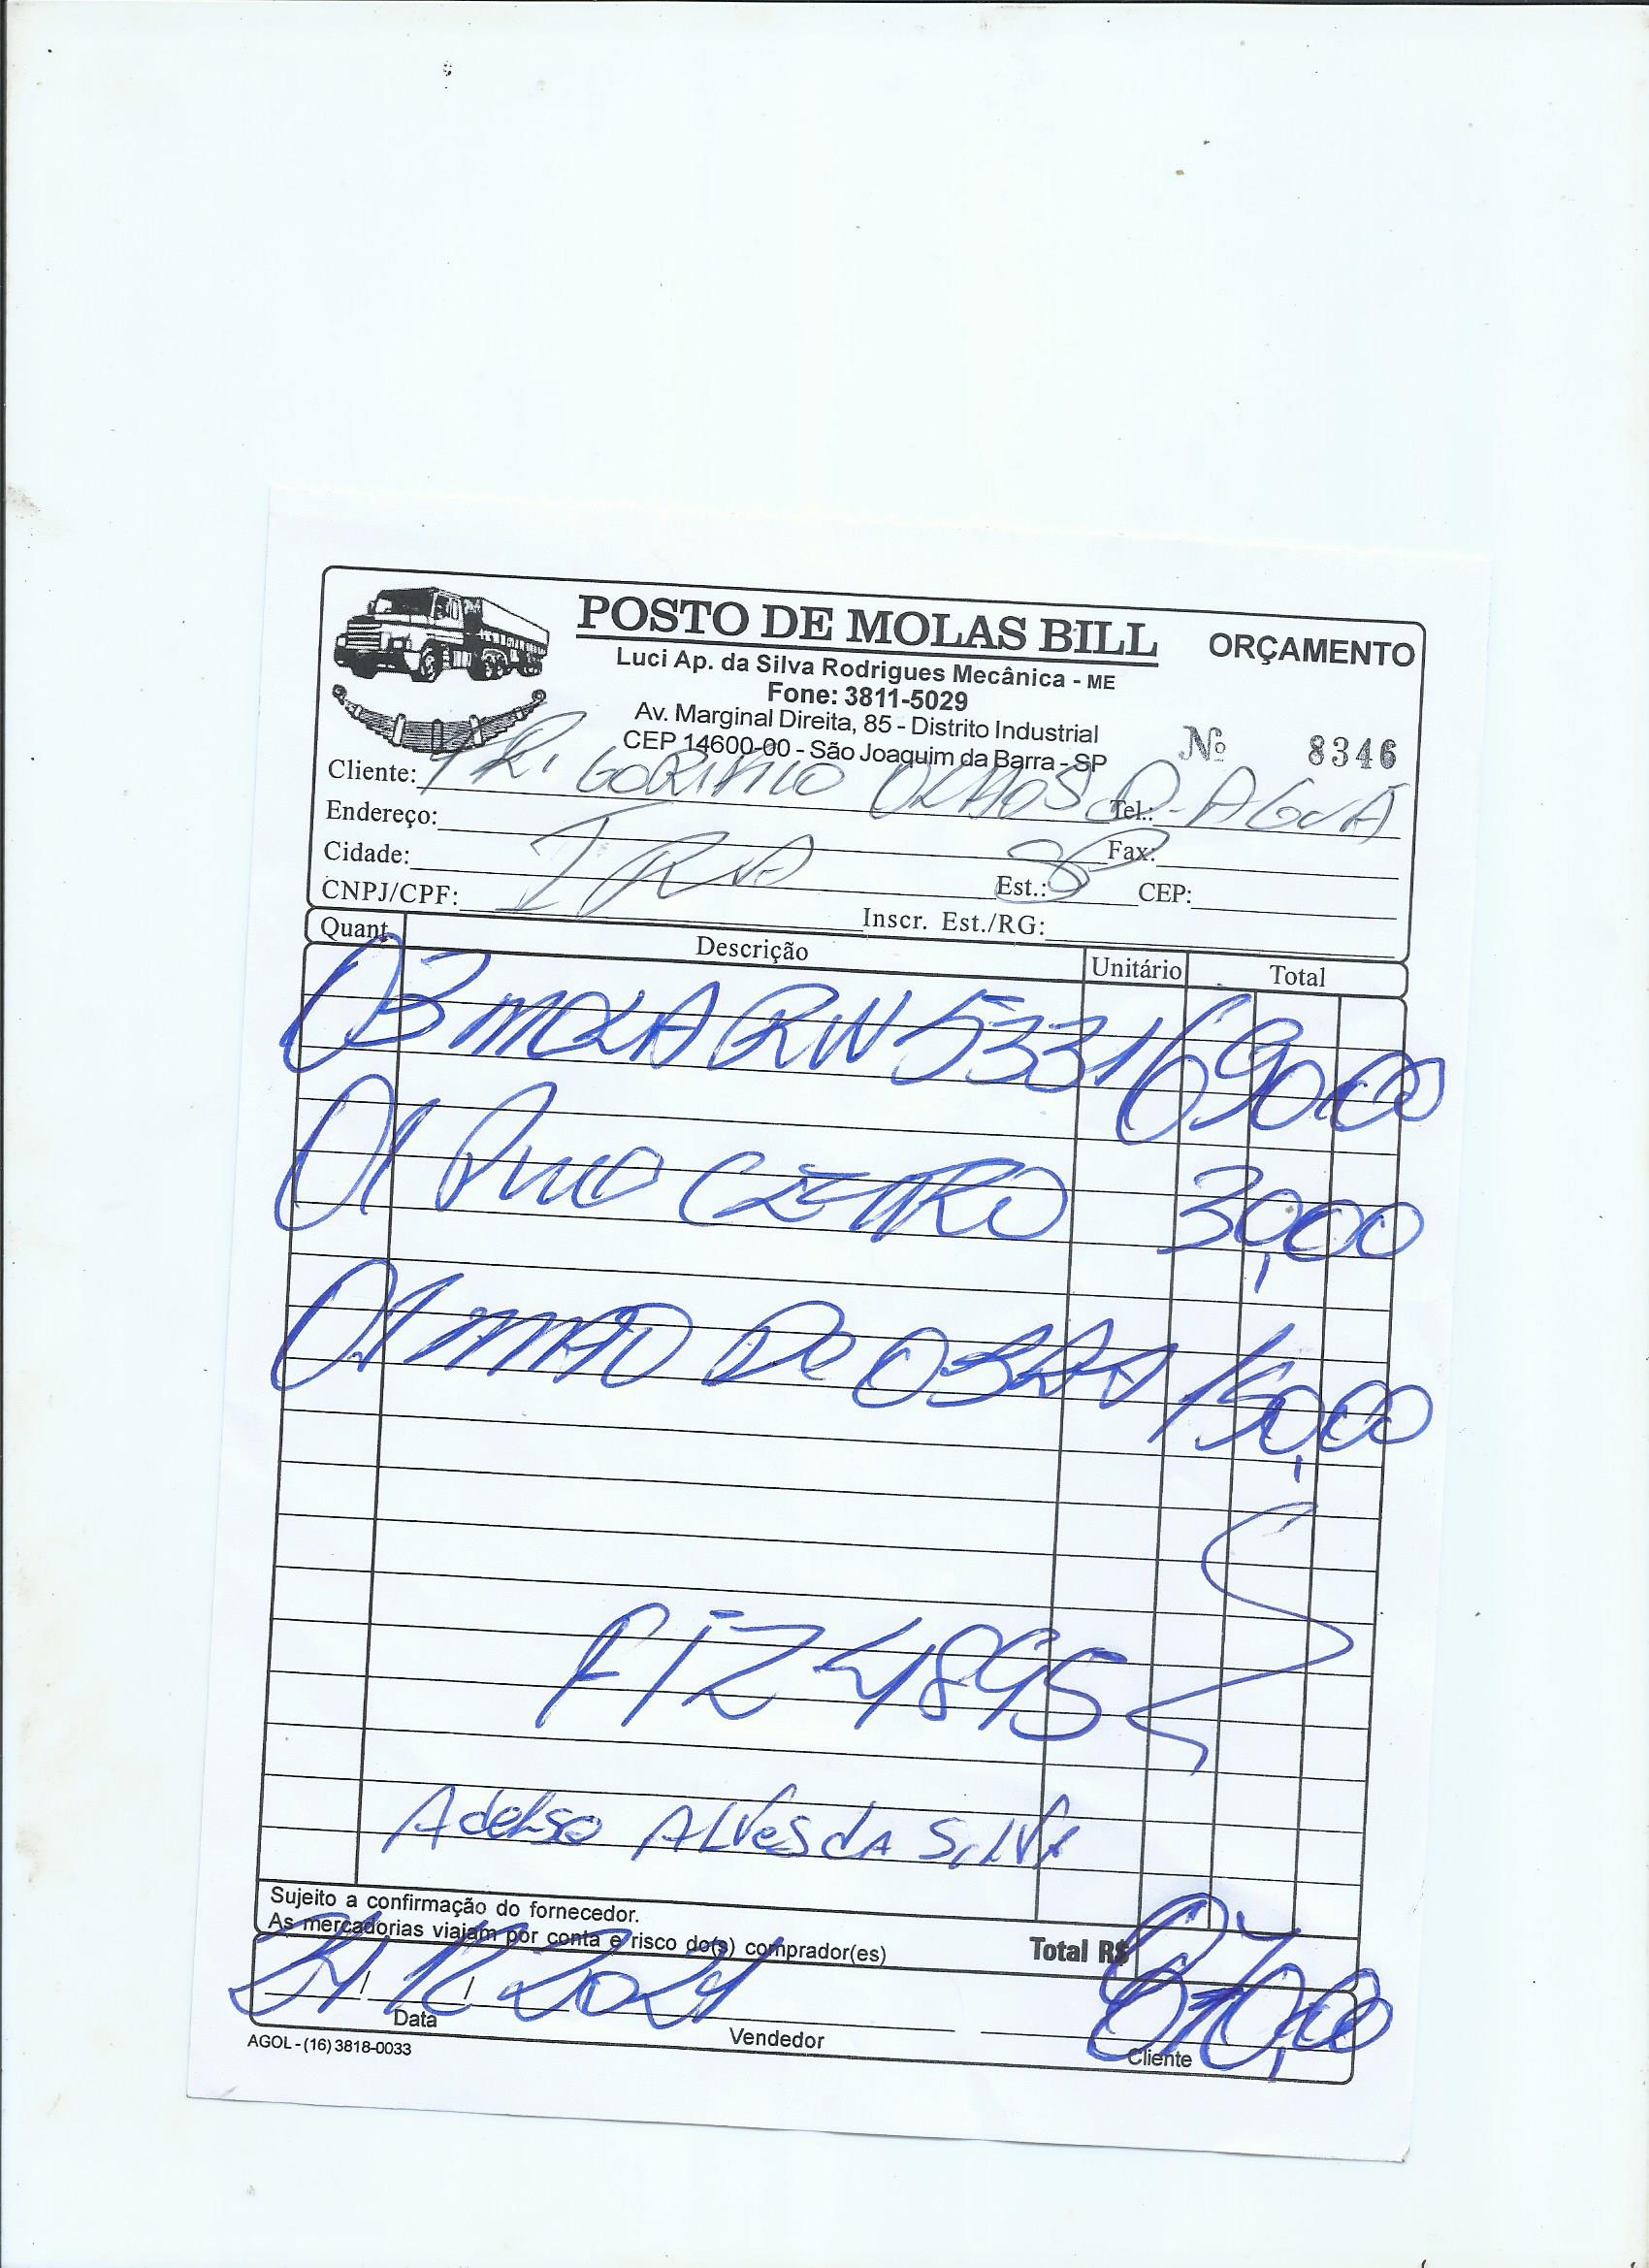 POSTO DE MOLAS BILL
ORÇAMENTO
Luci Ap. da Silva Rodrigues Mecânica - ME
Fone: 3811-5029
Av. Marginal Direita, 85 - Distrito Industrial
CEP 14600-00 - São Joaquim da Barra - SP
Nº 8346
Cliente: FRIGORIFICO OLHOS D-AGUA Tel.:
Endereço: Fax:
Cidade: Est.: SP CEP:
CNPJ/CPF: Inscr. Est./RG:
Quant. Descrição Unitário Total
03 MOLA RN 5331 690,00
01 PINO CENTRO 30,00
01 MÃO DE OBRA 150,00
FIZ 4895
Adelso ALVES dA SilVA
Sujeito a confirmação do fornecedor.
As mercadorias viajam por conta e risco do(s) comprador(es)
Total R$ 870,00
/ 12 / 2021
Data Vendedor Cliente
AGOL - (16) 3818-0033